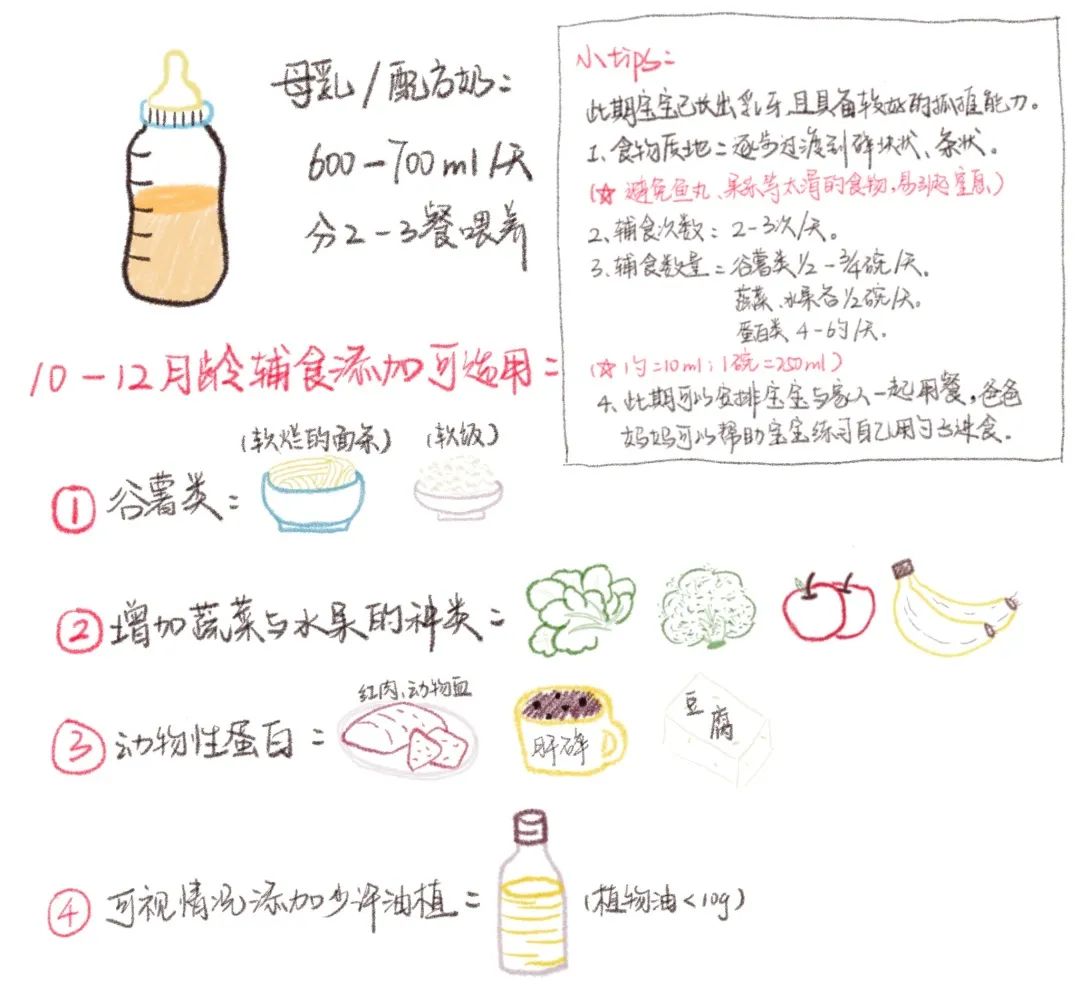 母乳/配方奶：
600-700ml/天
分2-3餐喂养
小tips：
此期宝宝已长出乳牙,且具备较好的抓握能力。
1、食物质地：逐步过渡到碎块状、条状。
(☆ 避免鱼丸、果冻等太滑的食物,易引起窒息)
2、辅食次数：2-3次/天。
3、辅食数量：谷薯类1/2-3/4碗/天。
蔬菜、水果各1/2碗/天。
蛋白类 4-6勺/天。
(☆ 1勺=10ml；1碗=250ml)
4、此期可以安排宝宝与家人一起用餐,爸爸
妈妈可以帮助宝宝练习自己用勺子进食。
10-12月龄辅食添加可选用：
(软烂的面条) (软饭)
① 谷薯类：
② 增加蔬菜与水果的种类：
红肉、动物血
③ 动物性蛋白：
肝碎
豆腐
④ 可视情况添加少许油植：
(植物油<10g)